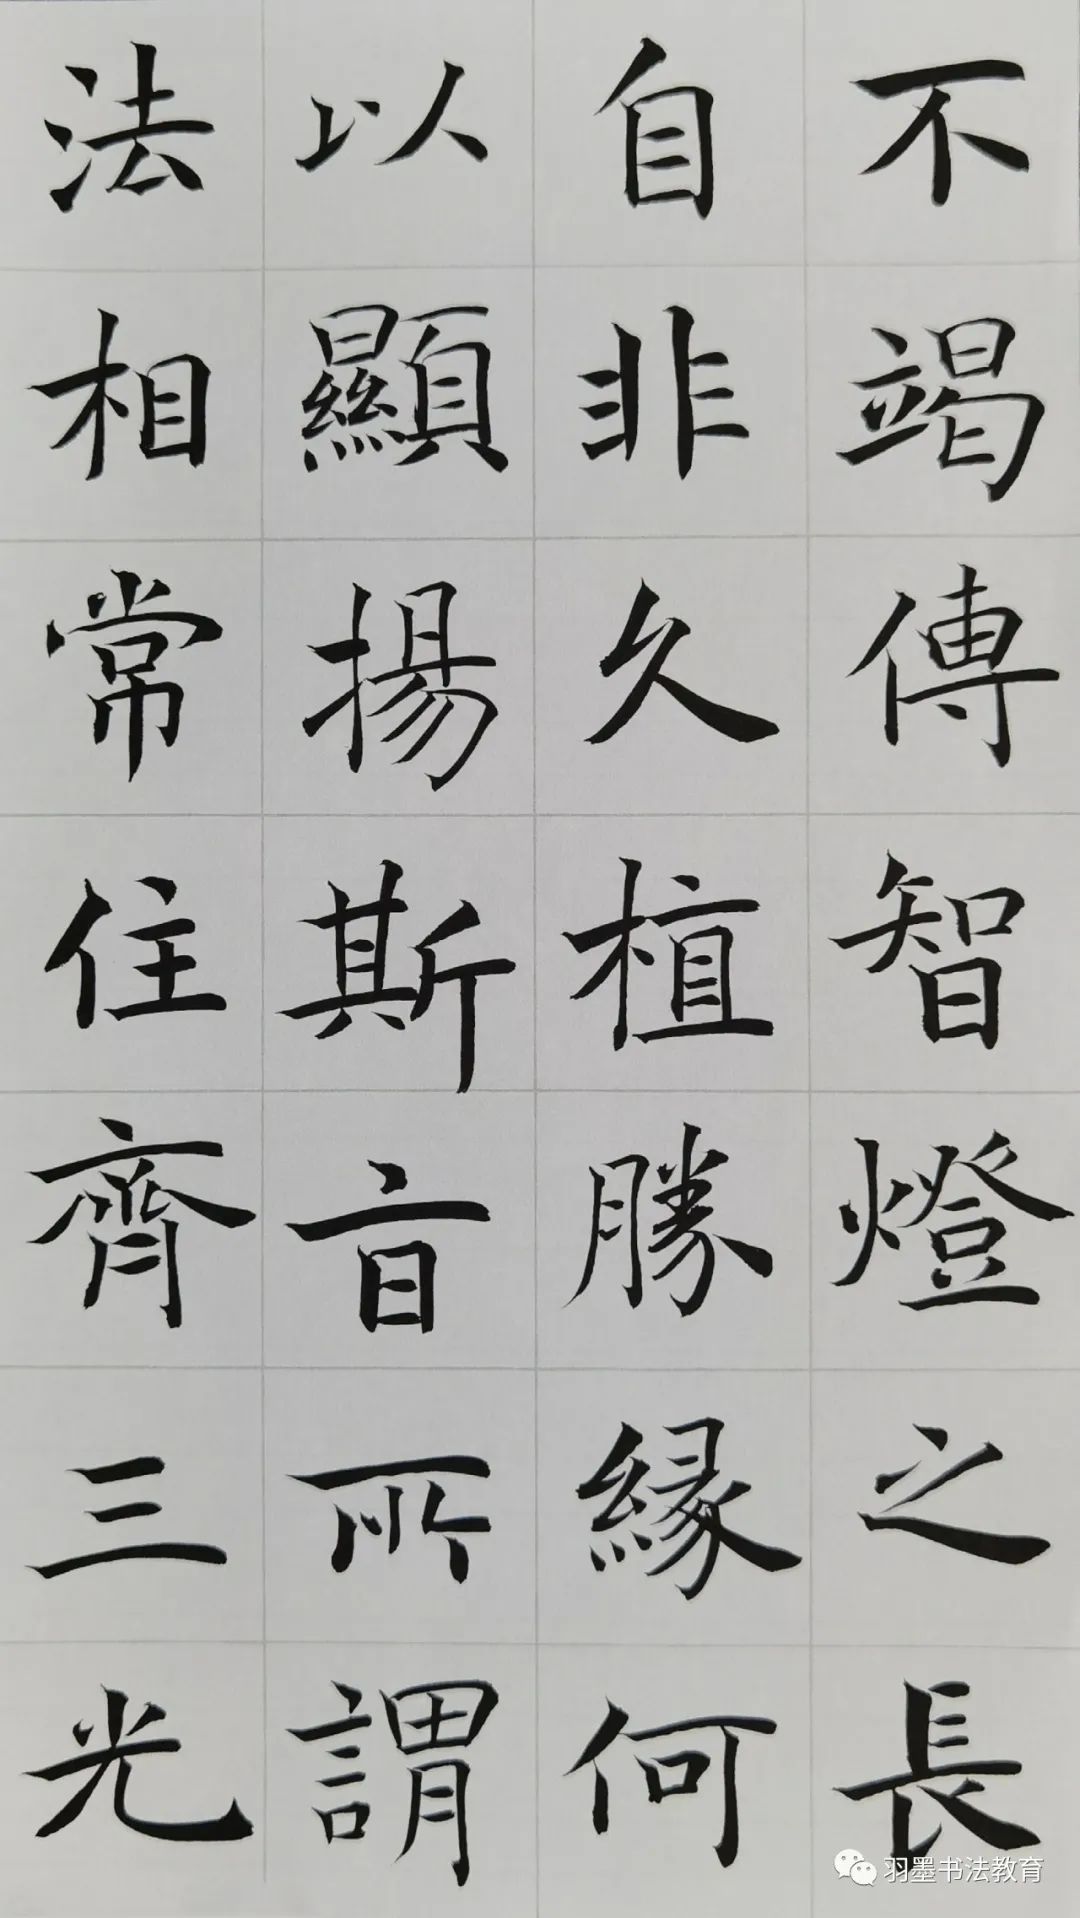 不竭傳智燈之長
自非久植勝緣何
以顯揚斯旨所謂
法相常住齊三光
羽墨书法教育